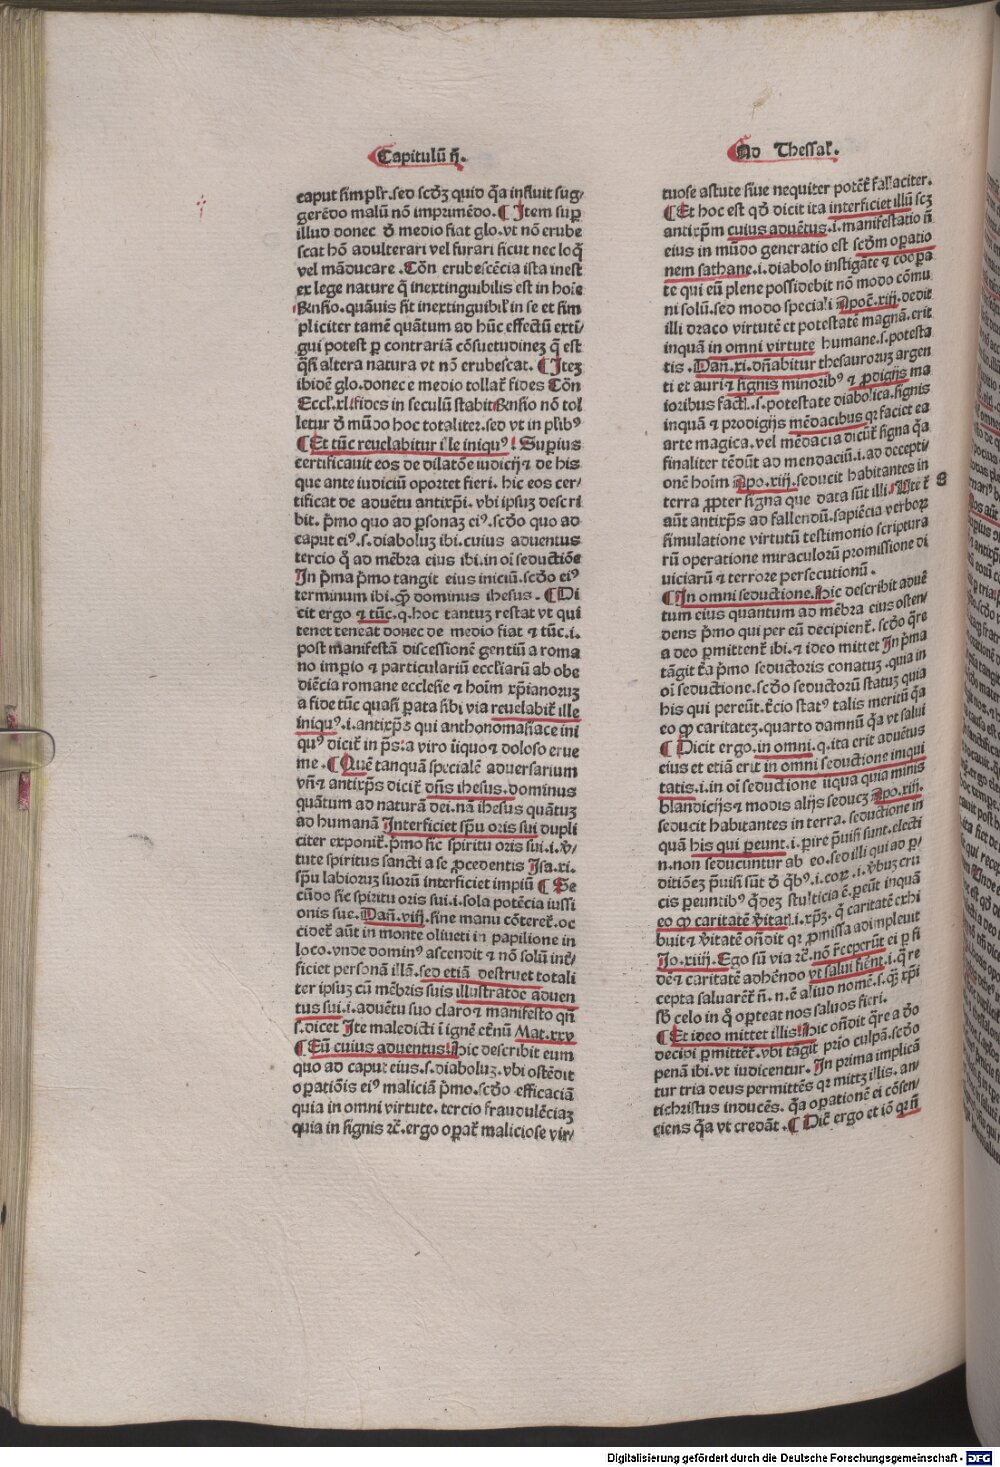 Capitulū ij.
caput simplr̄. sed scd̄ꝫ quid q̄a influit sug/
gerēdo malū nō imprimēdo. ¶ Item sup̄
illud donec de medio fiat glo. vt nō erube
scat hō adulterari vel furari sicut nec loq̄
vel māducare. Cōn erubescēcia ista inest
ex lege nature q̄ inextinguibilis est in hoīe
Rn̄sio. quāuis sit inextinguibil' in se et sim
pliciter tamē quātum ad hūc effectū exti/
gui potest p̲ contrariā cōsuetudineꝫ q̄ est
q̄si altera natura vt nō erubescat. ¶ Iteꝫ
ibidē glo. donec e medio tollat̄ fides Cōn
Eccl'. xl. fides in seculū stabit Rn̄sio nō tol
letur de mūdo hoc totaliter. sed vt in plibꝰ
¶ Et tūc reuelabitur ille iniquꝰ! Superius
certificauit eos de dilatōe iudicij ⁊ de his
que ante iudiciū oportet fieri. hic eos cer/
tificat de aduētu antixp̄i. vbi ipsuꝫ descri
bit. p̄mo quo ad p̲sonaꝫ eiꝰ. scd̄o quo ad
caput eiꝰ. s. diaboluꝫ ibi. cuius aduentus
tercio q̄ ad mēbra eius ibi. in oī seductiōe
In p̄ma p̄mo tangit eius iniciū. scd̄o eiꝰ
terminum ibi. qꝫ dominus ihesus. ¶ Di
cit ergo ⁊ tūc. q. hoc tantuꝫ restat vt qui
tenet teneat donec de medio fiat ⁊ tūc. i.
post manifestā discessionē gentiū a roma
no imp̲io ⁊ particulariū eccl'iarū ab obe
diēcia romane ecclesie ⁊ hoīm xp̄ianoruꝫ
a fide tūc quasi p̲ata sibi via reuelabit̄ ille
iniqꝰ. i. antixp̄s qui anthonomasiace ini
quꝰ dicit̄ in p̄s. a viro iīquo ⁊ doloso erue
me. ¶ Quē tanquā specialē aduersarium
vn̄ ⁊ antixp̄s dicit̄ dn̄s ihesus. dominus
quātum ad naturā dei. nā ihesus quātuꝫ
ad humanā Interficiet sp̄u oris sui dupli
citer exponit̄. p̄mo sic spiritu oris sui. i. v̄/
tute spiritus sancti a se p̲cedentis Isa. xi.
sp̄u labioruꝫ suorū interficiet impiū ¶ Se
cūdo sic spiritu oris sui. i. sola potēcia iussi
onis sue. Dan̄. viij. sine manu cōteret̄. oc
cidet̄ aūt in monte oliueti in papilione in
loco. vnde dominꝰ ascendit ⁊ nō solū int̄/
ficiet personā illā. sed etiā destruet totali
ter ipsuꝫ cū mēbris suis illustratōe aduen
tus sui. i. aduētu suo claro ⁊ manifesto qn̄
s. dicet Ite maledicti ī ignē et̄nū Mat. xxv
¶ Eū cuius aduentus! Hic describit eum
quo ad caput eius. s. diaboluꝫ. vbi ostēdit
op̲atiōis eiꝰ maliciā p̄mo. scd̄o efficaciā
quia in omni virtute. tercio fraudulēciaꝫ
quia in signis ⁊c̄. ergo op̲at̄ maliciose vir/
Ad Thessal'.
tuose astute siue nequiter potēt̄ fallaciter.
¶ Et hoc est qd̄ dicit ita interficiet illū scꝫ
antixp̄m cuius aduētus. i. manifestatio n̄
eius in mūdo generatio est scd̄m op̲atio
nem sathane. i. diabolo instigāte ⁊ coop̲a
te qui eū plene possidebit nō modo cōmu
ni solū. sed modo speciali Apoc̄. xiij. dedit
illi draco virtutē et potestatē magnā. erit
inquā in omni virtute humane. s. potesta
tis. Dan̄. xi. dn̄abitur thesauroruꝫ argen
ti et auri ⁊ signis minoribꝰ ⁊ p̲digijs ma
ioribus fact'. s. potestate diabolica. signis
inquā ⁊ prodigijs mēdacibus qꝛ faciet ea
arte magica. vel mēdacia dicūt̄ signa q̄a
finaliter tēdūt ad mendaciū. i. ad decepti/
onē hoīm Apo. xiij. seducit habitantes in
terra p̲pter signa que data sūt illi. Vtet̄
aūt antixp̄s ad fallendū. sapiēcia verboꝝ
simulatione virtutū testimonio scriptura
rū operatione miraculorū promissione di
uiciarū ⁊ terrore persecutionū.
¶ In omni seductione. Hic describit aduē
tum eius quantum ad mēbra eius osten/
dens p̄mo qui per eū decipient̄. scd̄o q̄re
a deo p̲mittent̄ ibi. ⁊ ideo mittet In p̄ma
tāgit t̄a p̄mo seductoris conatuꝫ. quia in
oī seductione. scd̄o seductorū statuꝫ quia
his qui pereūt. t̄cio statꝰ talis meritū q̄a
eo qꝫ caritateꝫ. quarto damnū q̄a vt salui
¶ Dicit ergo. in omni. q. ita erit aduētus
eius et etiā erit in omni seductione iniqui
tatis. i. in oī seductione iīqua quia minis
blandicijs ⁊ modis alijs seducꝫ Apo. xiij.
seducit habitantes in terra. seductione in
quā his qui p̲eunt. i. p̲ire p̄uisi sunt. electi
n. non seducuntur ab eo. sed illi qui ad p̲/
ditiōeꝫ p̄uisi sūt de q̄bꝰ. i. coꝝ. i. v̄buꝫ cru
cis p̲euntibꝰ q̄deꝫ stulticia ē. p̲eūt inquā
eo qꝫ caritatē v̄itat'. i. xp̄ꝫ. q̄ caritatē exhi
buit ⁊ v̄itatē on̄dit qꝛ p̲missa adimpleuit
Jo. xiiij. Ego sū via ⁊c̄. nō r̄ceperūt ei p̲ fi
dē ⁊ caritatē adhēndo vt salui fient. i. q̄ re
cepta saluarēt̄ n̄. n. ē aliud nomē. s. qꝫ xp̄i
sb̄ celo in q̄ op̲teat nos saluos fieri.
¶ Et ideo mittet illis! Hic on̄dit q̄re a deo
decipi p̲mittēt̄. vbi tāgit prio culpā. scd̄o
penā ibi. vt iudicentur. In prima implicā
tur tria deus permittēs qꝛ mittꝫ illis. an/
tichristus inducēs. q̄a op̲ationē ei cōsen/
ciens q̄a vt credāt. ¶ Dic̄ ergo et iō qꝛ n̄
Digitalisierung gefördert durch die Deutsche Forschungsgemeinschaft - DFG